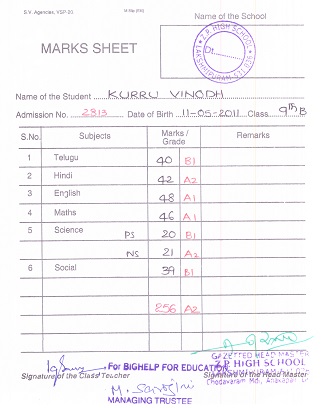 S.V. Agencies, VSP-20
MARKS SHEET
Name of the School
Z.P HIGH SCHOOL
Name of the Student KURRU VINODH
Admission No. 2813 Date of Birth 11-05-2011 Class 9th B
S.No. Subjects Marks / Grade Remarks
1 Telugu 40 B1
2 Hindi 42 A2
3 English 48 A1
4 Maths 46 A1
5 Science PS 20 B1
NS 21 A2
6 Social 39 B1
256 A2
GAZETTED HEAD MASTER
Z P HIGH SCHOOL
For BIGHELP FOR EDUCATION
Signature of the Class Teacher
Signature of the Head Master
Chodavaram Mdl., Anakapalli
MANAGING TRUSTEE